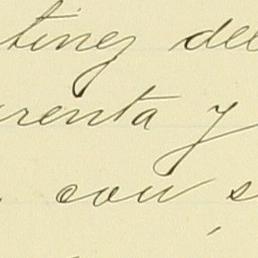 ting del
renta y
con s